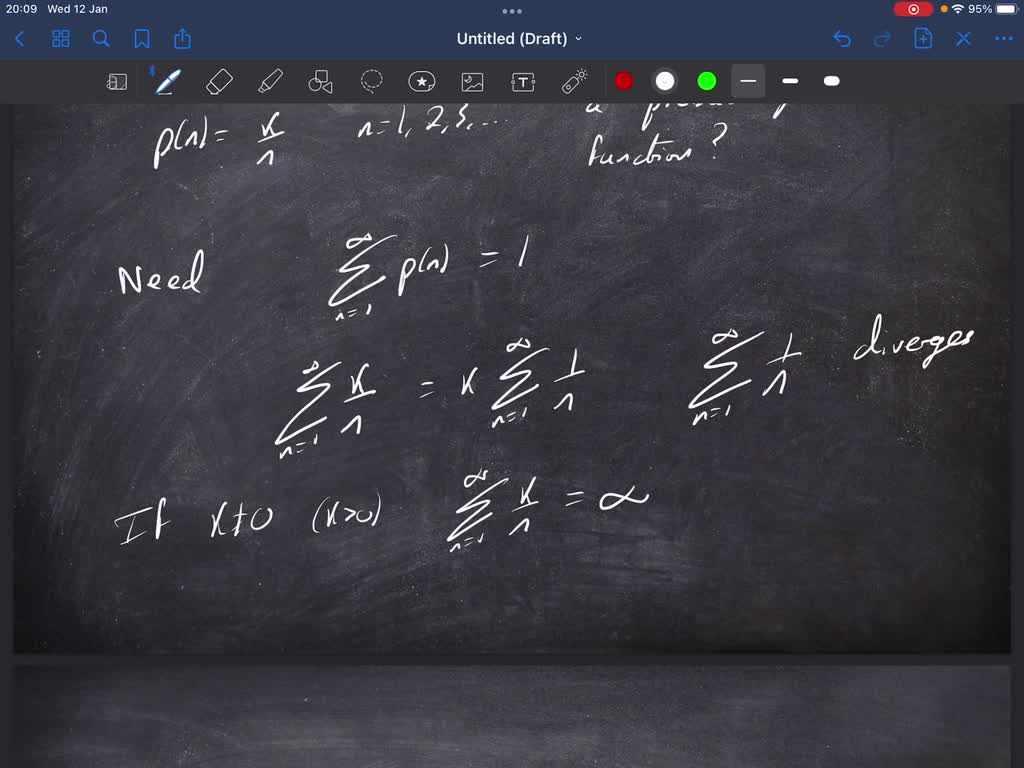 20:09 Wed 12 Jan
95%
Untitled (Draft)
p(n) = K/n n=1, 2, 3, ... a
function?
Need ∞ ∑ n=1 p(n) = 1
∞ ∑ n=1 K/n = K ∞ ∑ n=1 1/n ∞ ∑ n=1 1/n diverges
If K≠0 (K>0) ∞ ∑ n=1 K/n = ∞